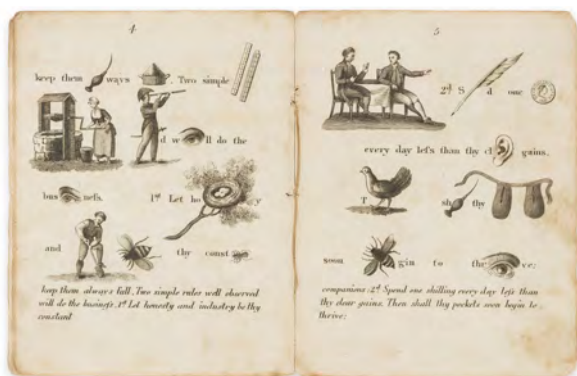 4
keep them ways . Two simple
d w ll do the
bus nefs. 1st Let ho y
and thy const
keep them always full. Two simple rules well observed
will do the businefs. 1st Let honesty and industry be thy
constant
5
2d S d one
every day lefs than thy cl gains.
T sh thy
soon gin to thr ve:
companions: 2d Spend one shilling every day lefs than
thy clear gains. Then shall thy pockets soon begin to
thrive: